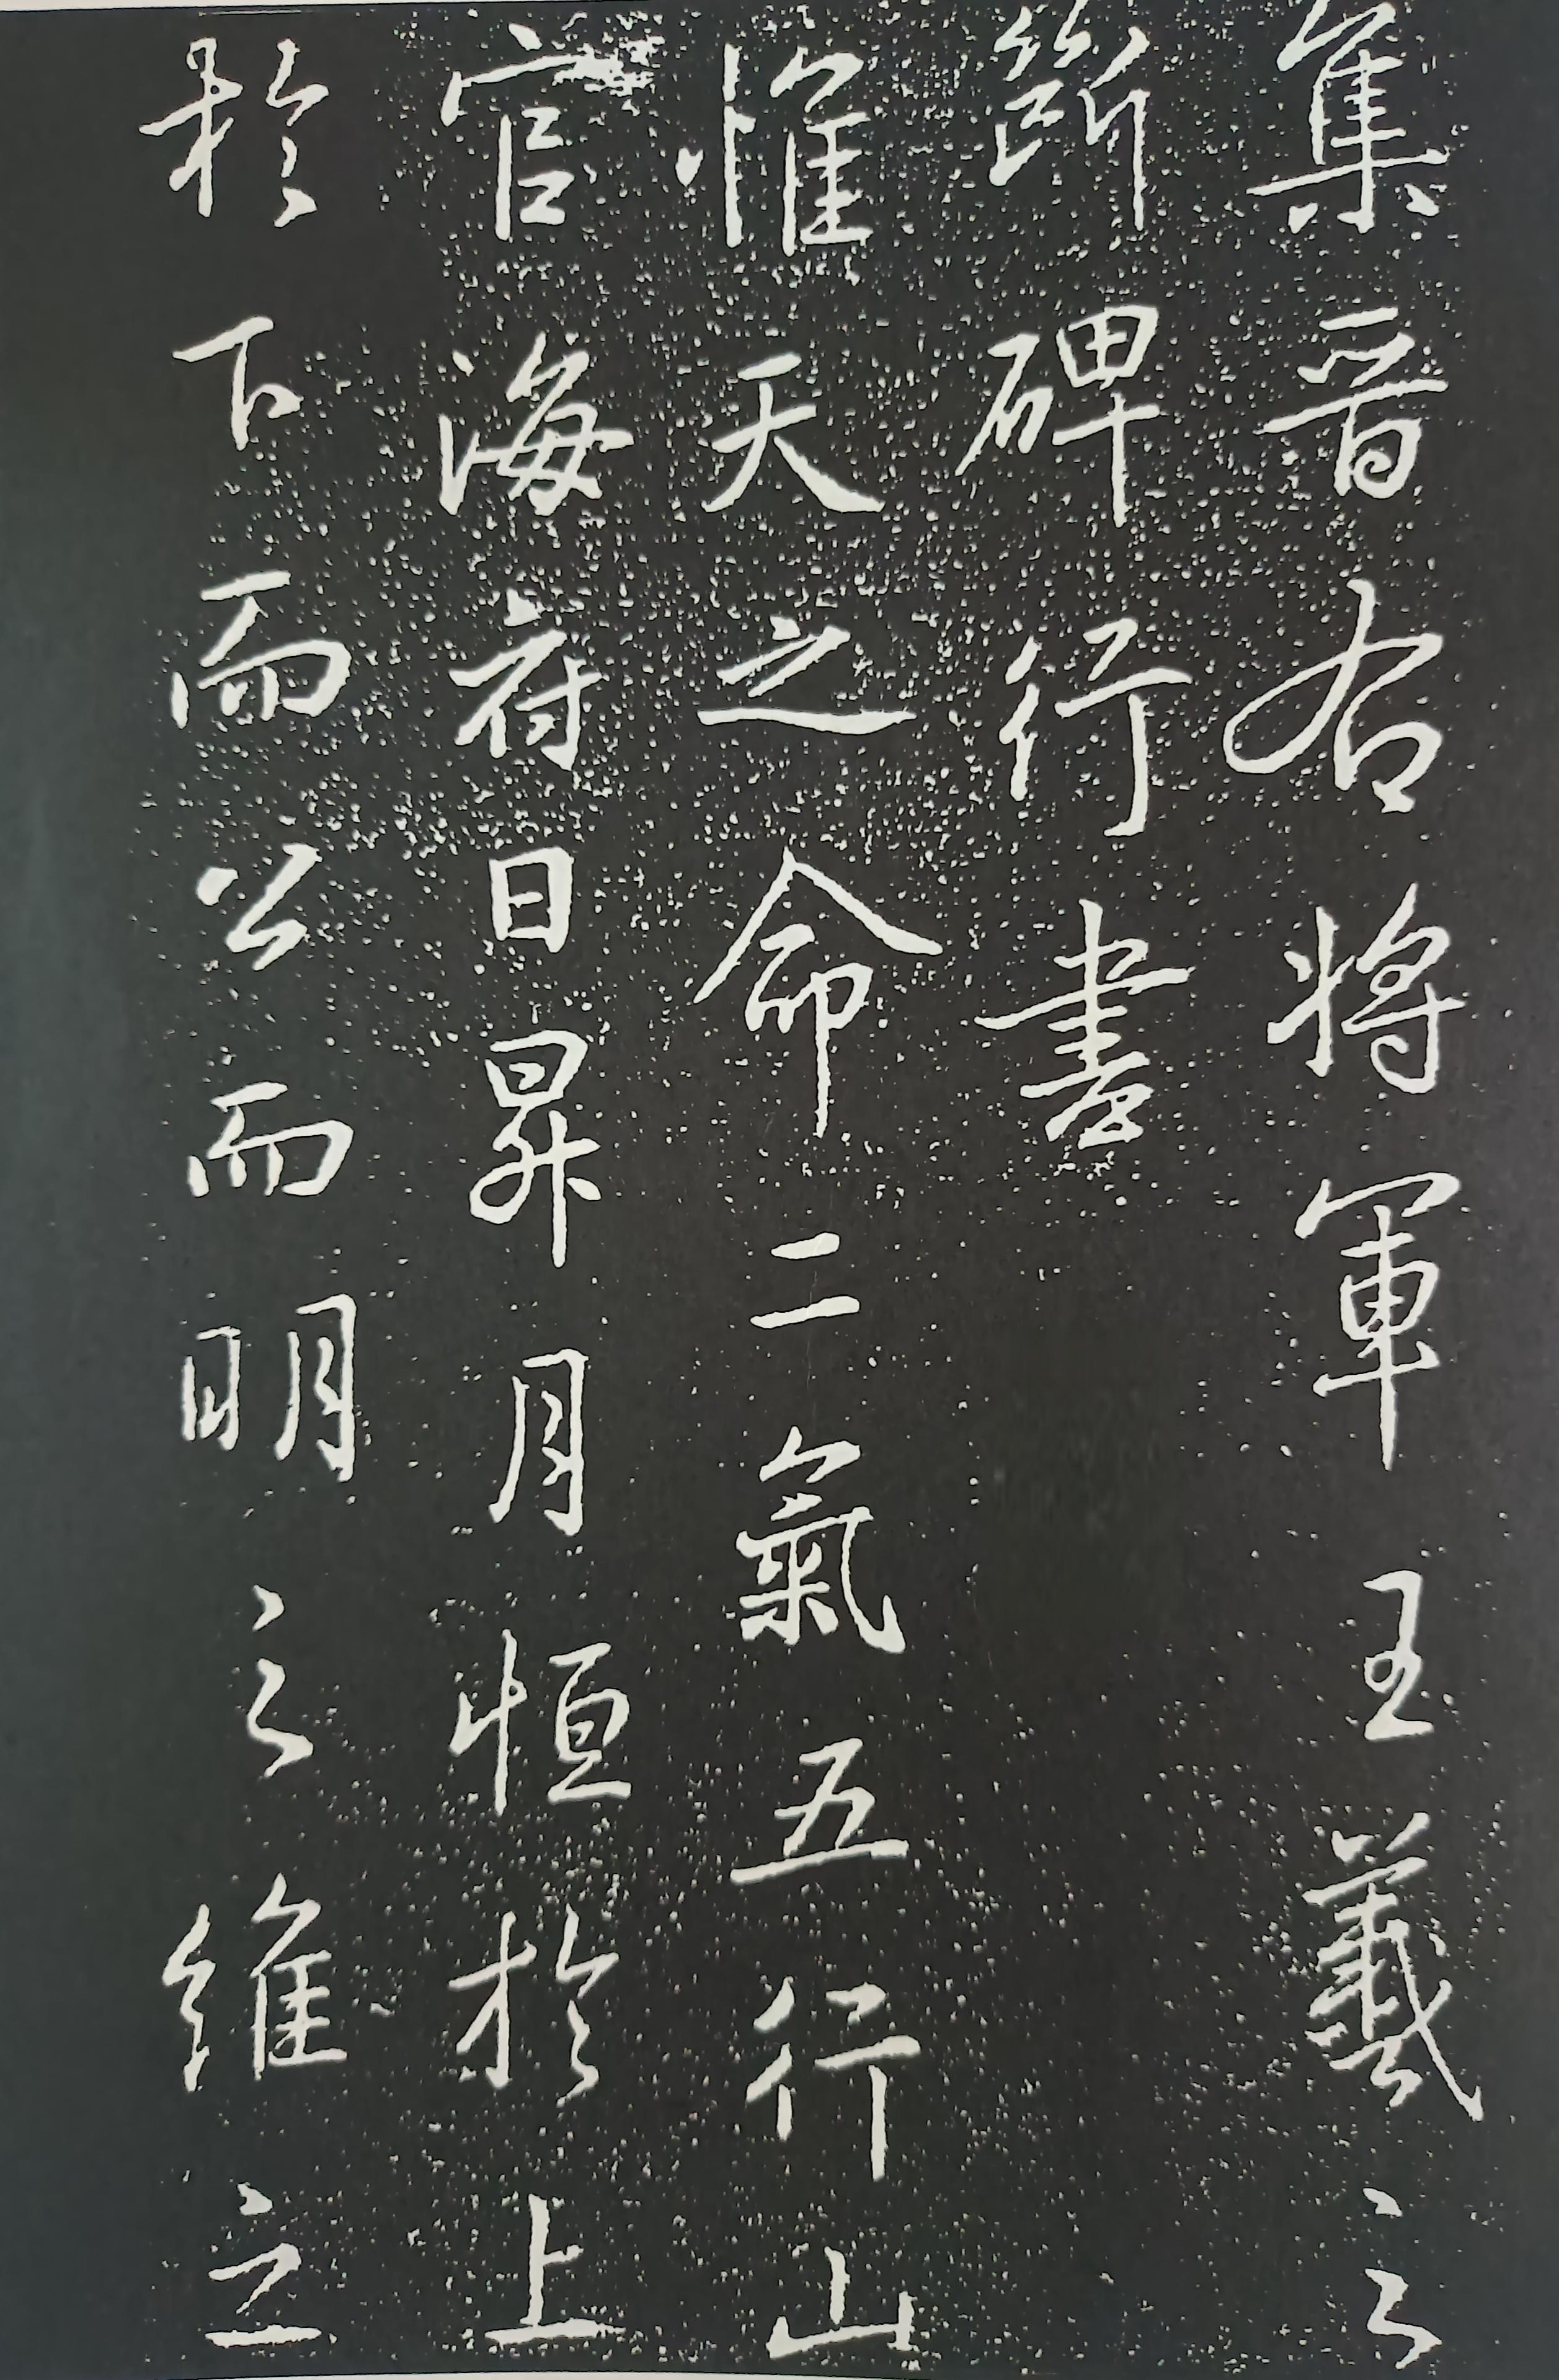 集晉右將軍王羲之
斷碑行書
惟天之命二氣五行山
官海府日昇月恒於上
於下而公而明之維立